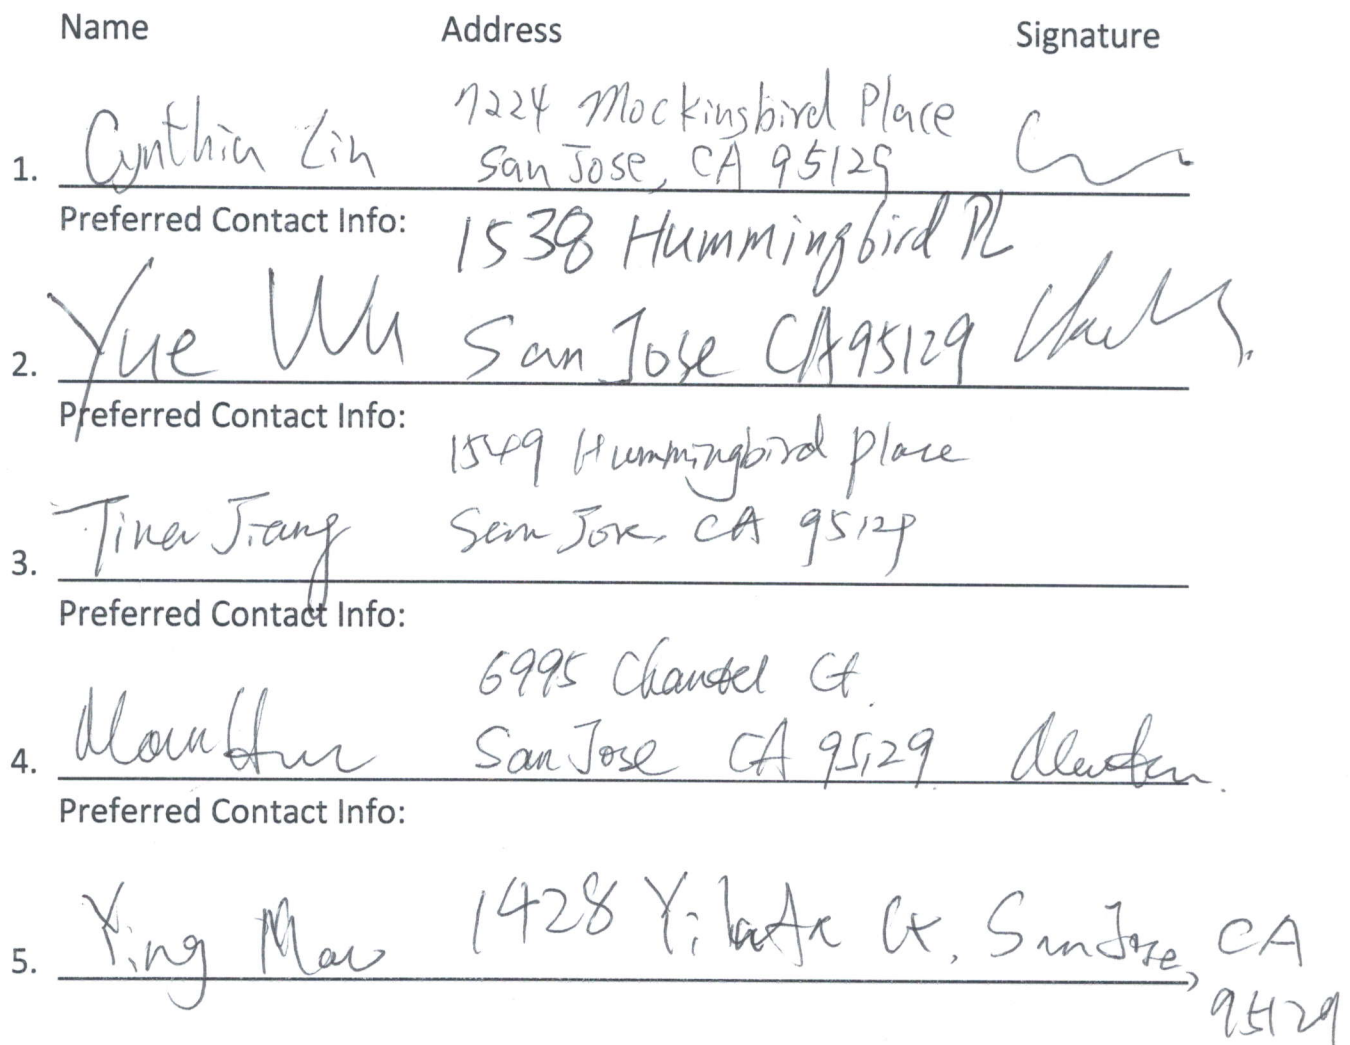 Name Address Signature
7224 Mockingbird Place
1. Cynthia Lin San Jose, CA 95129
Preferred Contact Info: 1538 Hummingbird PL
2. Yue Wu San Jose CA 95129
Preferred Contact Info:
1549 Hummingbird place
3. Tina Jiang San Jose, CA 95129
Preferred Contact Info:
6995 Chantel Ct.
4. San Jose CA 95129
Preferred Contact Info:
5. Ying Mao 1428 Ct, San Jose, CA
95129